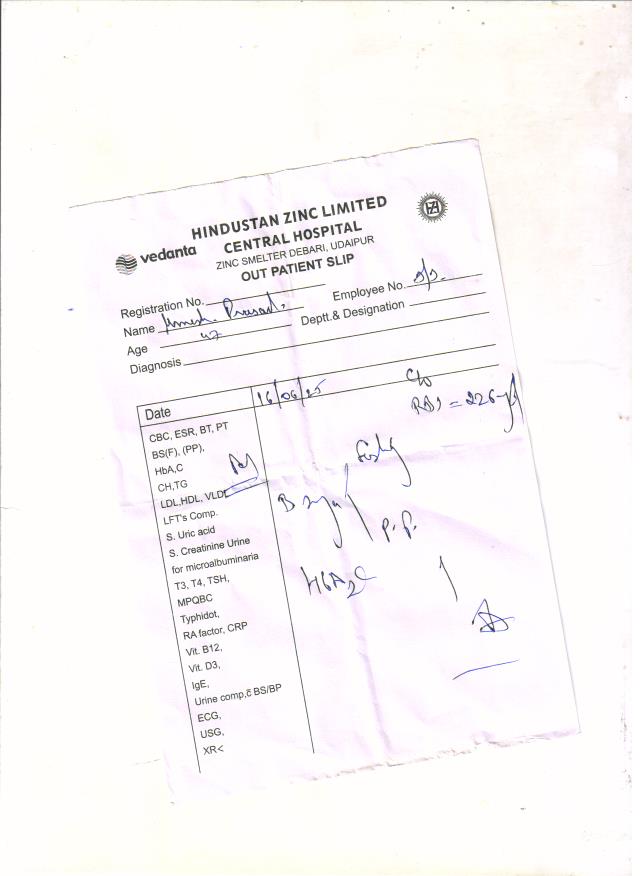 HINDUSTAN ZINC LIMITED
vedanta
CENTRAL HOSPITAL
ZINC SMELTER DEBARI, UDAIPUR
OUT PATIENT SLIP
Registration No.
Employee No.
Name Umesh Prasad.
Deptt.& Designation
Age 47
Diagnosis
Date 16/06/25
C/o
RBS = 226
CBC, ESR, BT, PT
BS(F), (PP),
HbA,C
CH,TG
LDL,HDL, VLDL
LFT's Comp.
S. Uric acid
S. Creatinine Urine
for microalbuminaria
T3, T4, TSH,
MPQBC
Typhidot,
RA factor, CRP
Vit. B12,
Vit. D3,
IgE,
Urine comp,č BS/BP
ECG,
USG,
XR<
Fasting
B Sugar
P.P.